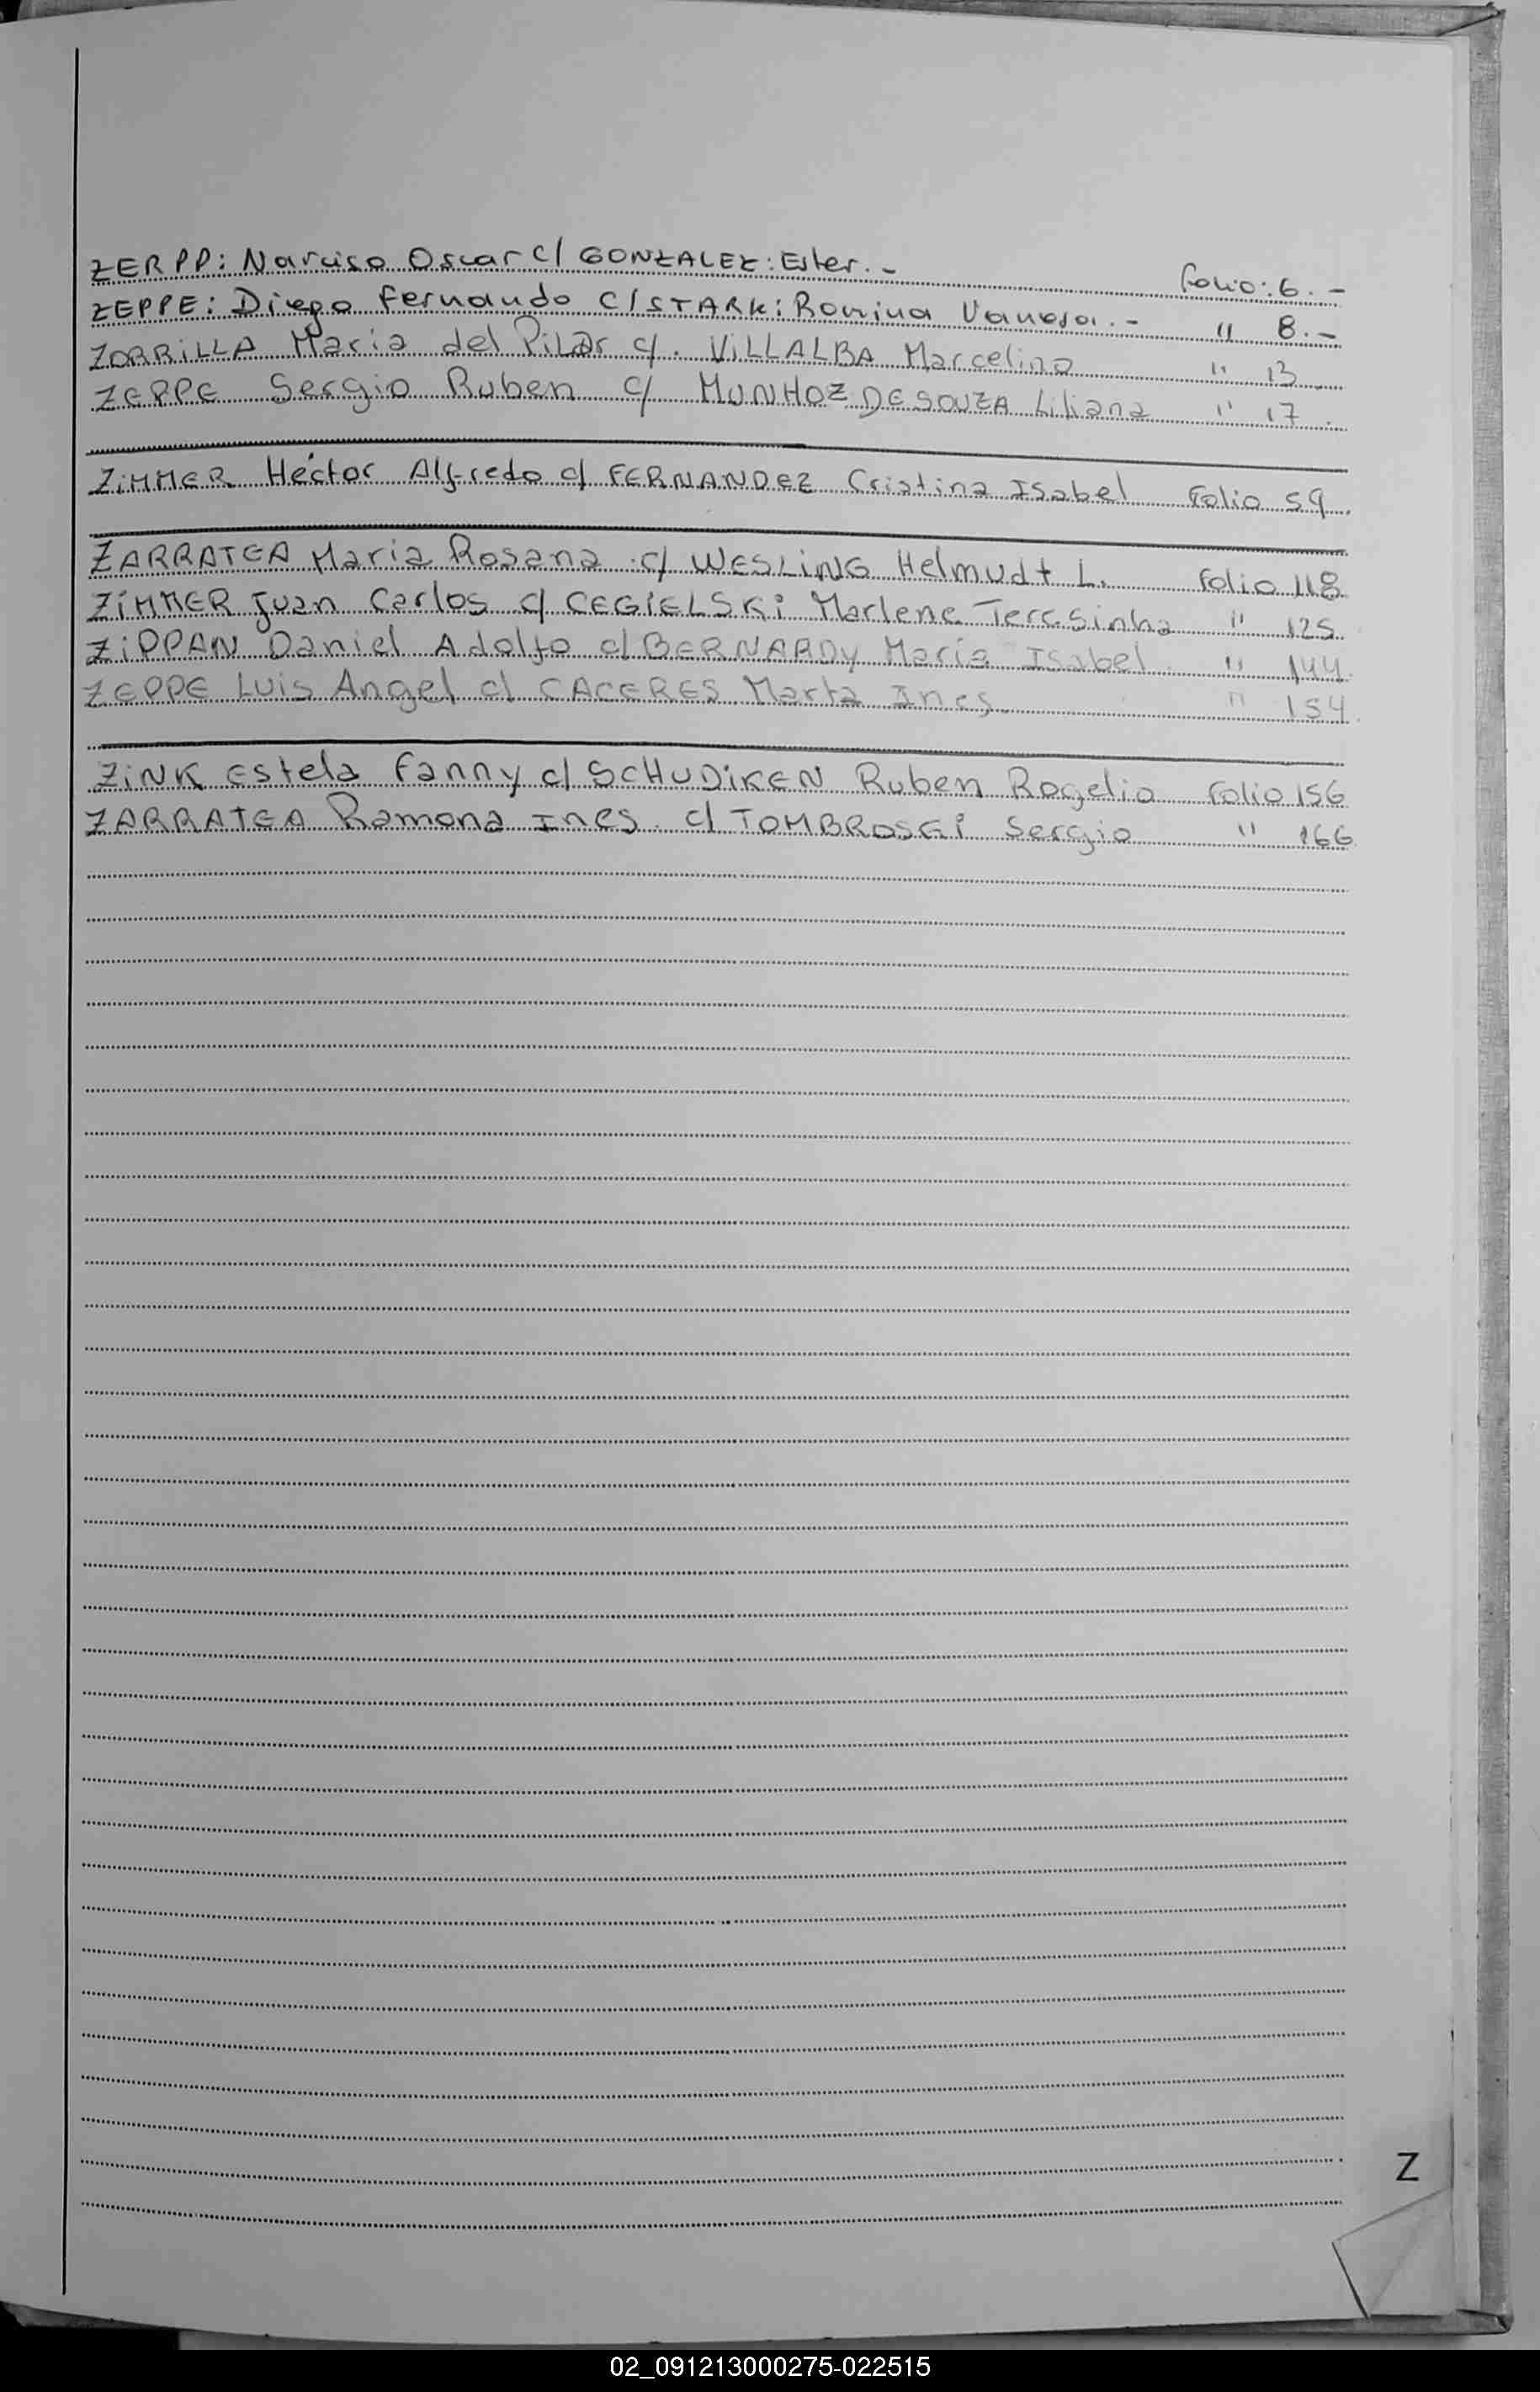 ZERPP: Narciso Oscar c/ GONZALEZ: Ester.- Folio: 6.-
ZEPPE: Diego Fernando c/ STARK: Romina Vanesa.- " 8.-
ZORRILLA Maria del Pilar c/. VILLALBA Marcelino " 13
ZEPPE Sergio Ruben c/ MUNHOZ DE SOUZA Liliana " 17.
ZiMMER Héctor Alfredo c/ FERNANDEZ Cristina Isabel Folio 59.
ZARRATEA Maria Rosana c/ WESLiNG Helmudt L. Folio 118
ZiMMER Juan Carlos c/ CEGiELSKi Marlene Teresinha " 125.
ZiPPAN Daniel Adolfo c/ BERNARDy María Isabel " 144.
ZEPPE Luis Angel c/ CACERES Marta Ines. " 154.
ZiNK Estela Fanny c/ SCHUDiKEN Ruben Rogelio Folio 156
ZARRATEA Ramona Ines. c/ TOMBROSGi Sergio " 166
Z
02_091213000275-022515